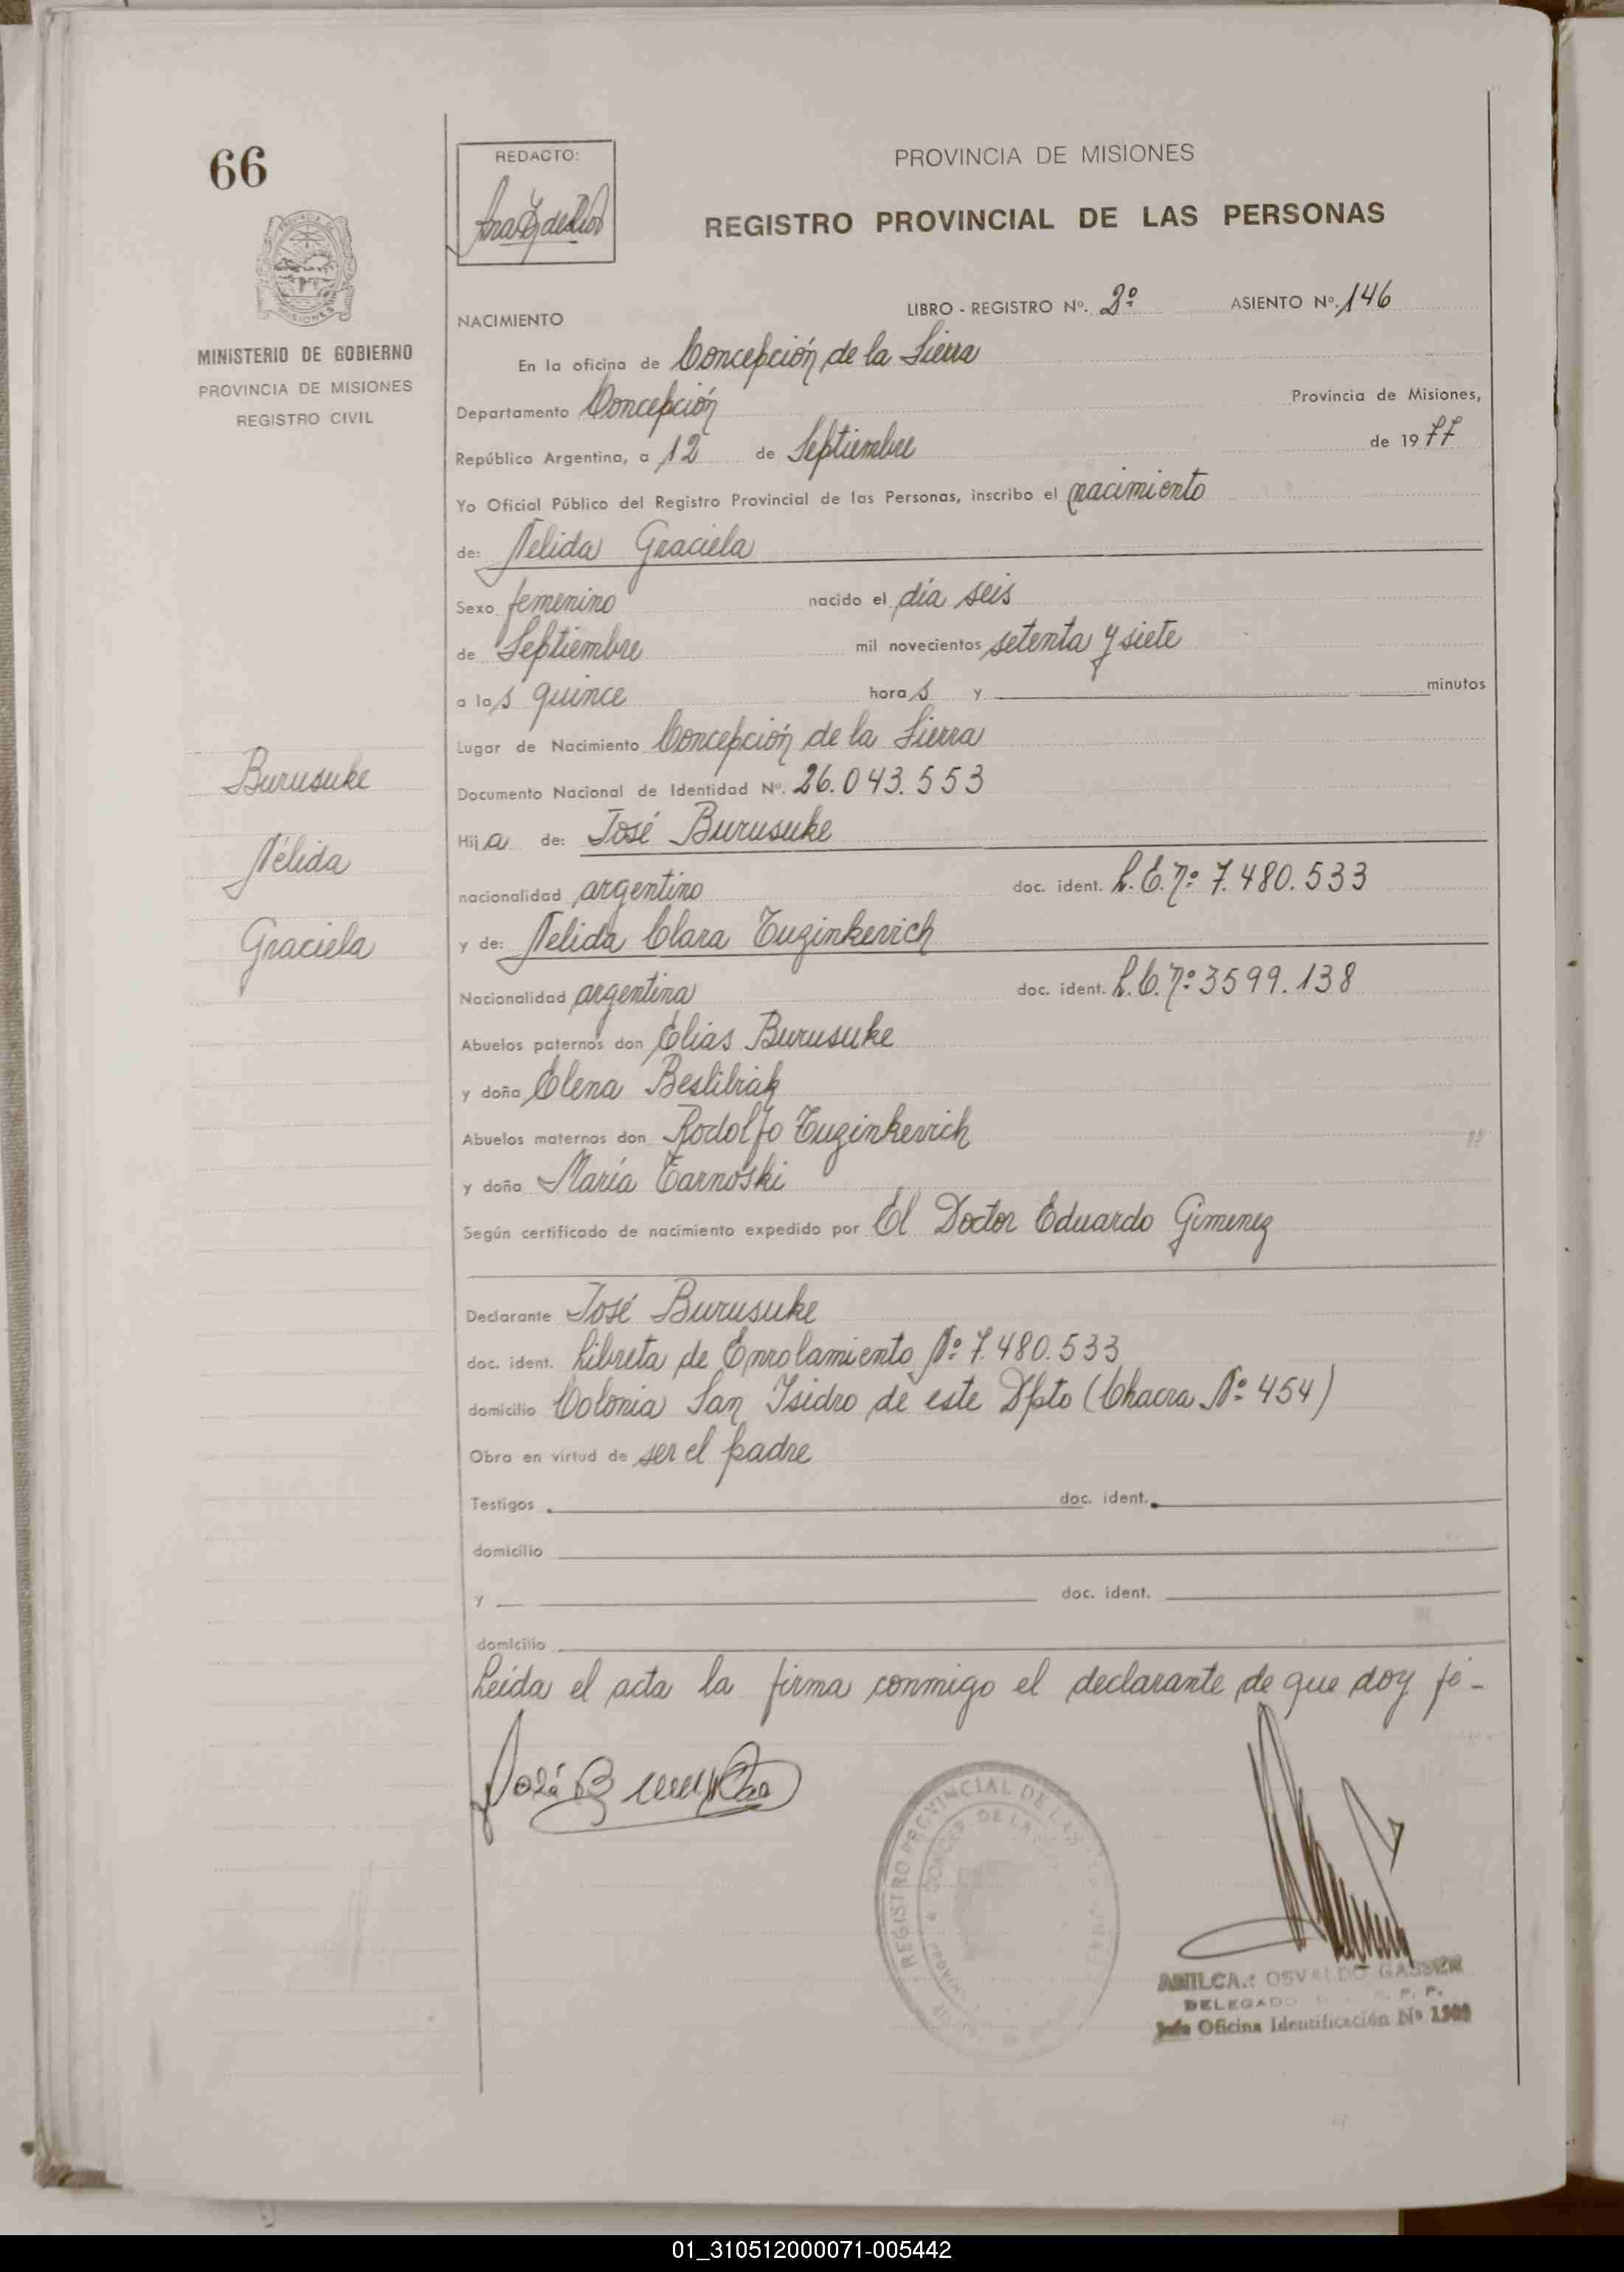 66
REDACTO:
PROVINCIA DE MISIONES
REGISTRO PROVINCIAL DE LAS PERSONAS
MINISTERIO DE GOBIERNO
PROVINCIA DE MISIONES
REGISTRO CIVIL
LIBRO - REGISTRO Nº. 2º ASIENTO Nº. 146
NACIMIENTO
En la oficina de Concepción de la Sierra
Departamento Concepción Provincia de Misiones,
República Argentina, a 12 de Septiembre de 1977
Yo Oficial Público del Registro Provincial de las Personas, inscribo el nacimiento
de: Nélida Graciela
Sexo femenino nacido el día seis
de Septiembre mil novecientos setenta y siete
a las quince horas y minutos
Lugar de Nacimiento Concepción de la Sierra
Documento Nacional de Identidad Nº. 26.043.553
Burusuke
Nélida
Graciela
Hija de: José Burusuke
nacionalidad argentino doc. ident. L.E.nº 7.480.533
y de: Nelida Clara Tuzinkevich
Nacionalidad argentina doc. ident. L.C.nº 3599.138
Abuelos paternos don Elias Burusuke
y doña Elena Beslibiak
Abuelos maternos don Rodolfo Tuzinkevich
y doña María Tarnoski
Según certificado de nacimiento expedido por El Doctor Eduardo Gimenez
Declarante José Burusuke
doc. ident. Libreta de Enrolamiento Nº 7.480.533
domicilio Colonia San Isidro de este Dpto (Chacra Nº 454)
Obra en virtud de ser el padre
Testigos doc. ident.
domicilio
y doc. ident.
domicilio
Leída el acta la firma conmigo el declarante de que doy fé-
José Burusuke
REGISTRO PROVINCIAL DE LAS
DE LA
OSVALDO GASSER
DELEGADO
Jefe Oficina Identificación Nº
01_310512000071-005442